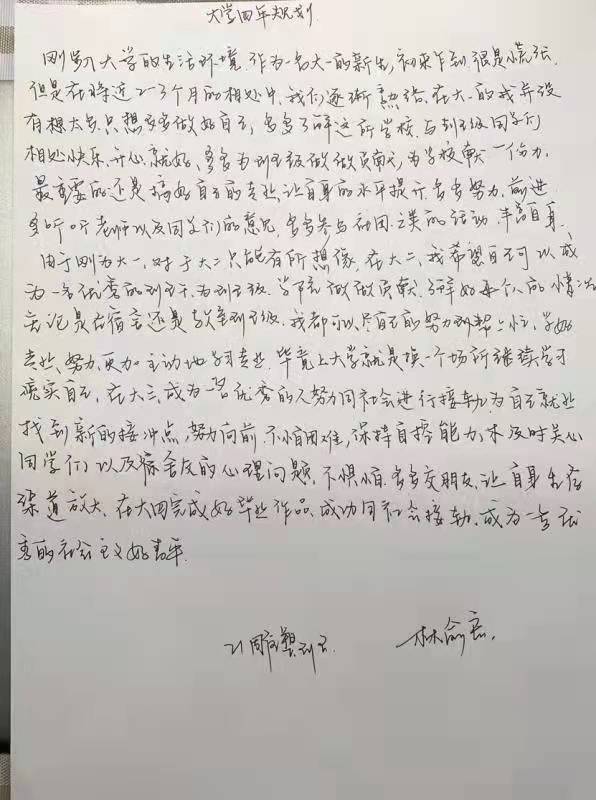 大学四年规划
刚步入大学的生活环境,作为一名大一的新生,初来乍到很是慌张,
但是在将近2-3个月的相处中,我们逐渐熟络,在大一的我并没
有想太多,只想多多做好自己,多多了解这所学校,与班级同学们
相处快乐、开心就好、多多为班级做做贡献,为学校献一份力,
最重要的还是搞好自己的专业,让自身的水平提升,多多努力,前进
多听听老师以及同学们的意见,多多参与社团之类的活动,丰富自身、
由于刚为大一,对于大二只能有所想像,在大二,我希望自己可以成
为一名优秀的班干,为班级、学院做做贡献,了解好每个人的情况
无论是在宿舍还是教室班级,我都可以尽自己的努力到帮上忙,学好
专业,努力,更加主动地学习专业,毕竟上大学就是换一个场所继续学习
充实自己,在大三,成为一名优秀的人努力同社会进行接轨,为自己就业
找到新的接冲点,努力向前,不怕困难,保持自控能力,及时关心
同学们以及宿舍友的心理问题,不惧怕,多多交朋友,让自身生存
渠道放大,在大四完成好毕业作品,成功同社会接轨,成为一名优
秀的社会主义好青年.
21雕塑 林俞宏.